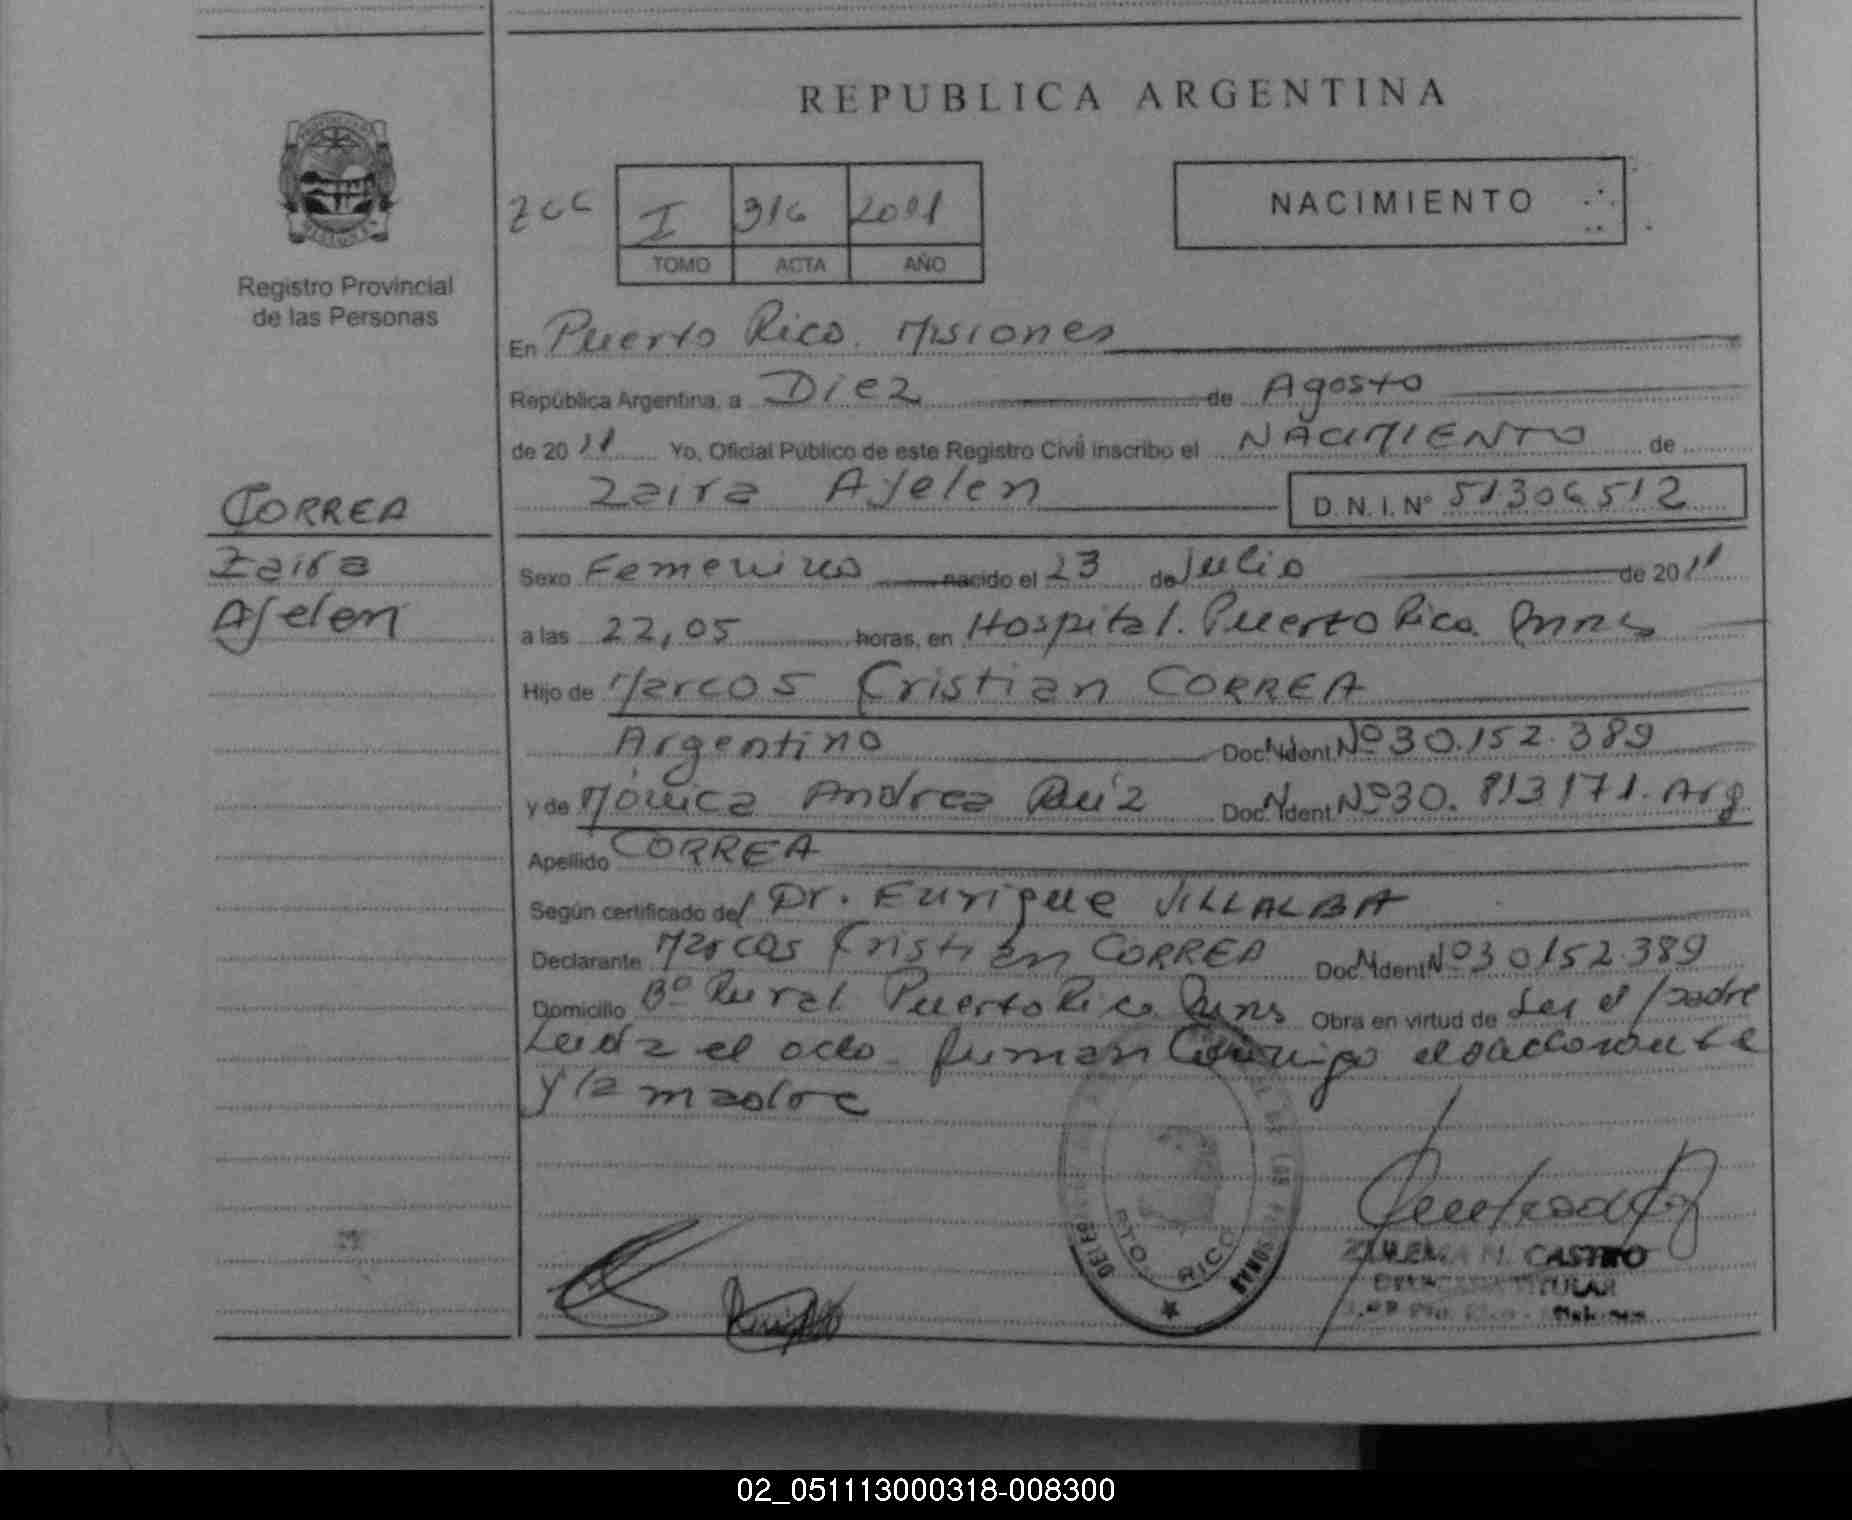 REPUBLICA ARGENTINA
I 316 2011
TOMO ACTA AÑO
NACIMIENTO
Registro Provincial
de las Personas
En Puerto Rico. Misiones
República Argentina, a Diez de Agosto
de 2011 Yo, Oficial Público de este Registro Civil inscribo el NACIMIENTO de
Zaira Ayelen D.N.I. Nº 51306512
CORREA
Zaira
Ayelen
Sexo Femenino nacido el 23 de Julio de 2011
a las 22,05 horas, en Hospital. Puerto Rico. Mnes
Hijo de Marcos Cristian CORREA
Argentino Doc. N. Ident. Nº 30.152.389
y de Mónica Andrea Ruíz Doc. N. Ident. Nº 30.813171. Arg
Apellido CORREA
Según certificado del Dr. Enrique VILLALBA
Declarante Marcos Cristian CORREA Doc. N. Ident. Nº 30152.389
Domicilio Bº Rural Puerto Rico Mnes Obra en virtud de ser el padre
Leida el acta firman conmigo el declarante
y la madre
PTO. RICO
ZULEMA N. CASTRO
DELEGADA TITULAR
02_051113000318-008300